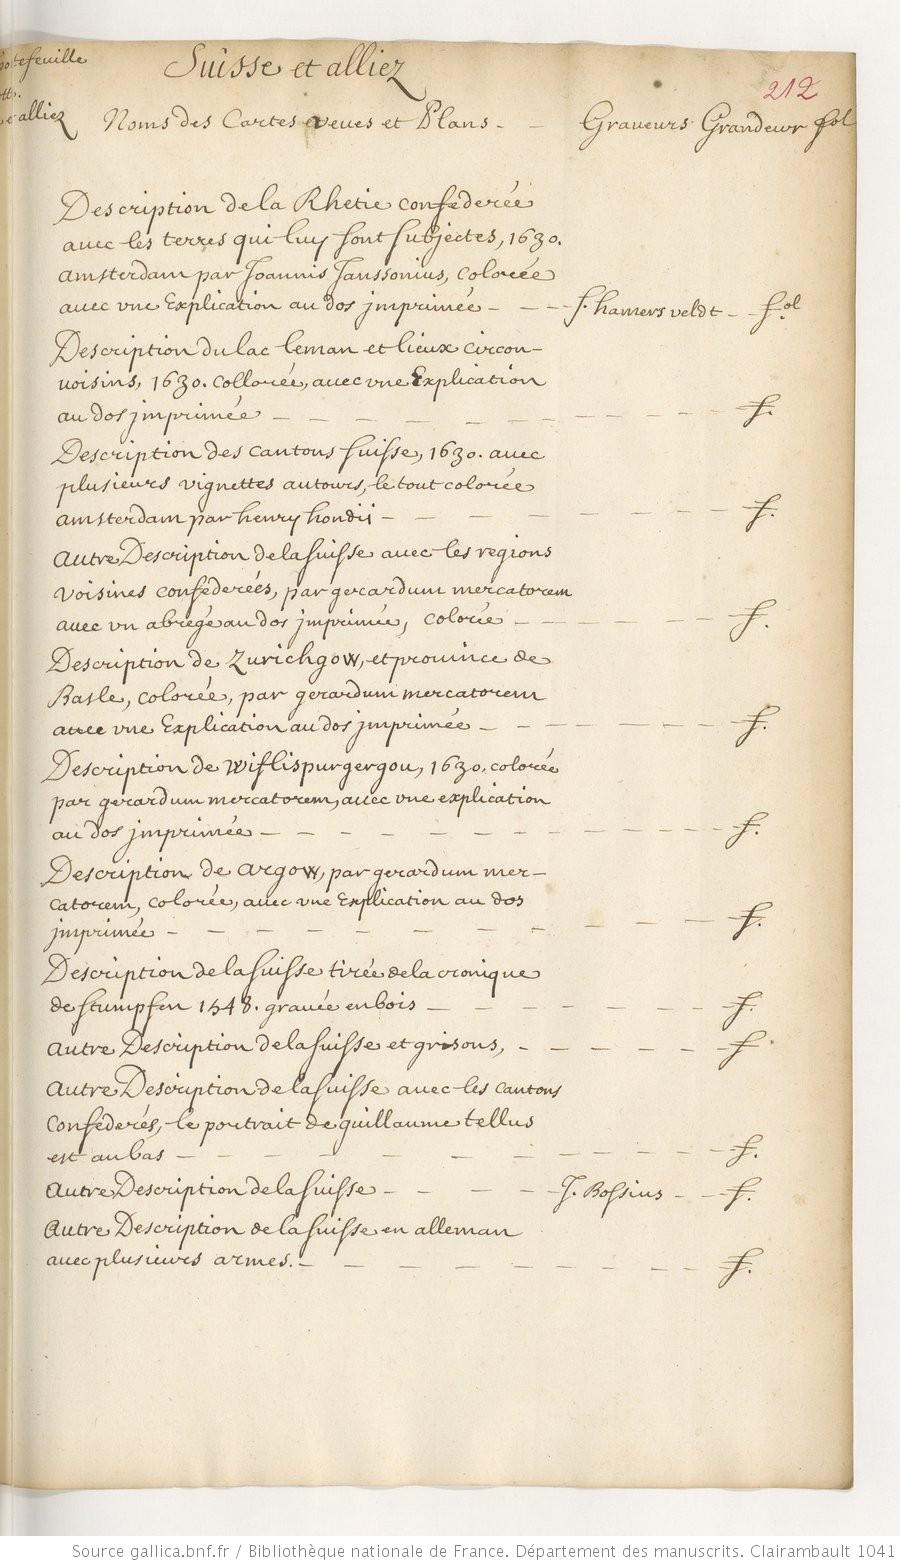 Suisse et alliez
212
Noms des Cartes veues et Plans - - Graveurs Grandeur fol
Description de la Rhetie confederée
avec les terres qui luy sont subjectes, 1630.
amsterdam par Joannis Janssonius, colorée
avec vne Explication au dos jmprimée - - - f. hamers veldt - - fol.
Description du lac leman et lieux circon-
uoisins, 1630. collorée, avec vne Explication
au dos jmprimée - - - f.
Description des cantons suisse, 1630. avec
plusieurs vignettes autours, le tout colorée
amsterdam par henry hondii - - - f.
autre Description de la suisse avec les regions
voisines conféderées, par gerardum mercatorem
avec vn abregé au dos jmprimée, colorée - - - f.
Description de Zurichgow, et prouince de
Basle, colorée, par gerardum mercatorem
avec vne Explication au dos jmprimée - - - f.
Description de Wiflispurgergou, 1630. colorée
par gerardum mercatorem, avec vne explication
au dos jmprimée - - - f.
Description de argow, par gerardum mer-
catorem, colorée, avec vne Explication au dos
jmprimée - - - f.
Description de la suisse tirée de la cronique
de stumpfen 1548. gravée en bois - - - f.
autre Description de la suisse et grisons, - - - f.
autre Description de la suisse avec les cantons
conféderés, le portrait de guillaume tellus
est au bas - - - f.
autre Description de la suisse - - - J. Bossius - - f.
autre Description de la suisse en alleman
avec plusieurs armes. - - - f.
Source gallica.bnf.fr / Bibliothèque nationale de France. Département des manuscrits. Clairambault 1041